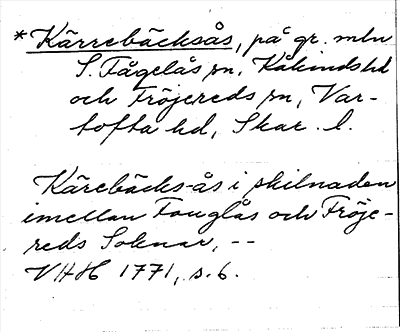 *Kärrebäcksås, på gr. mln
S. Fågelås sn, Kåkinds hd
och Fröjereds sn, Var-
tofta hd, Skar. l.
Kärebäcks-ås i skilnaden
imellan Fouglås och Fröje-
reds Soknar, --
VHH 1771, s. 6.